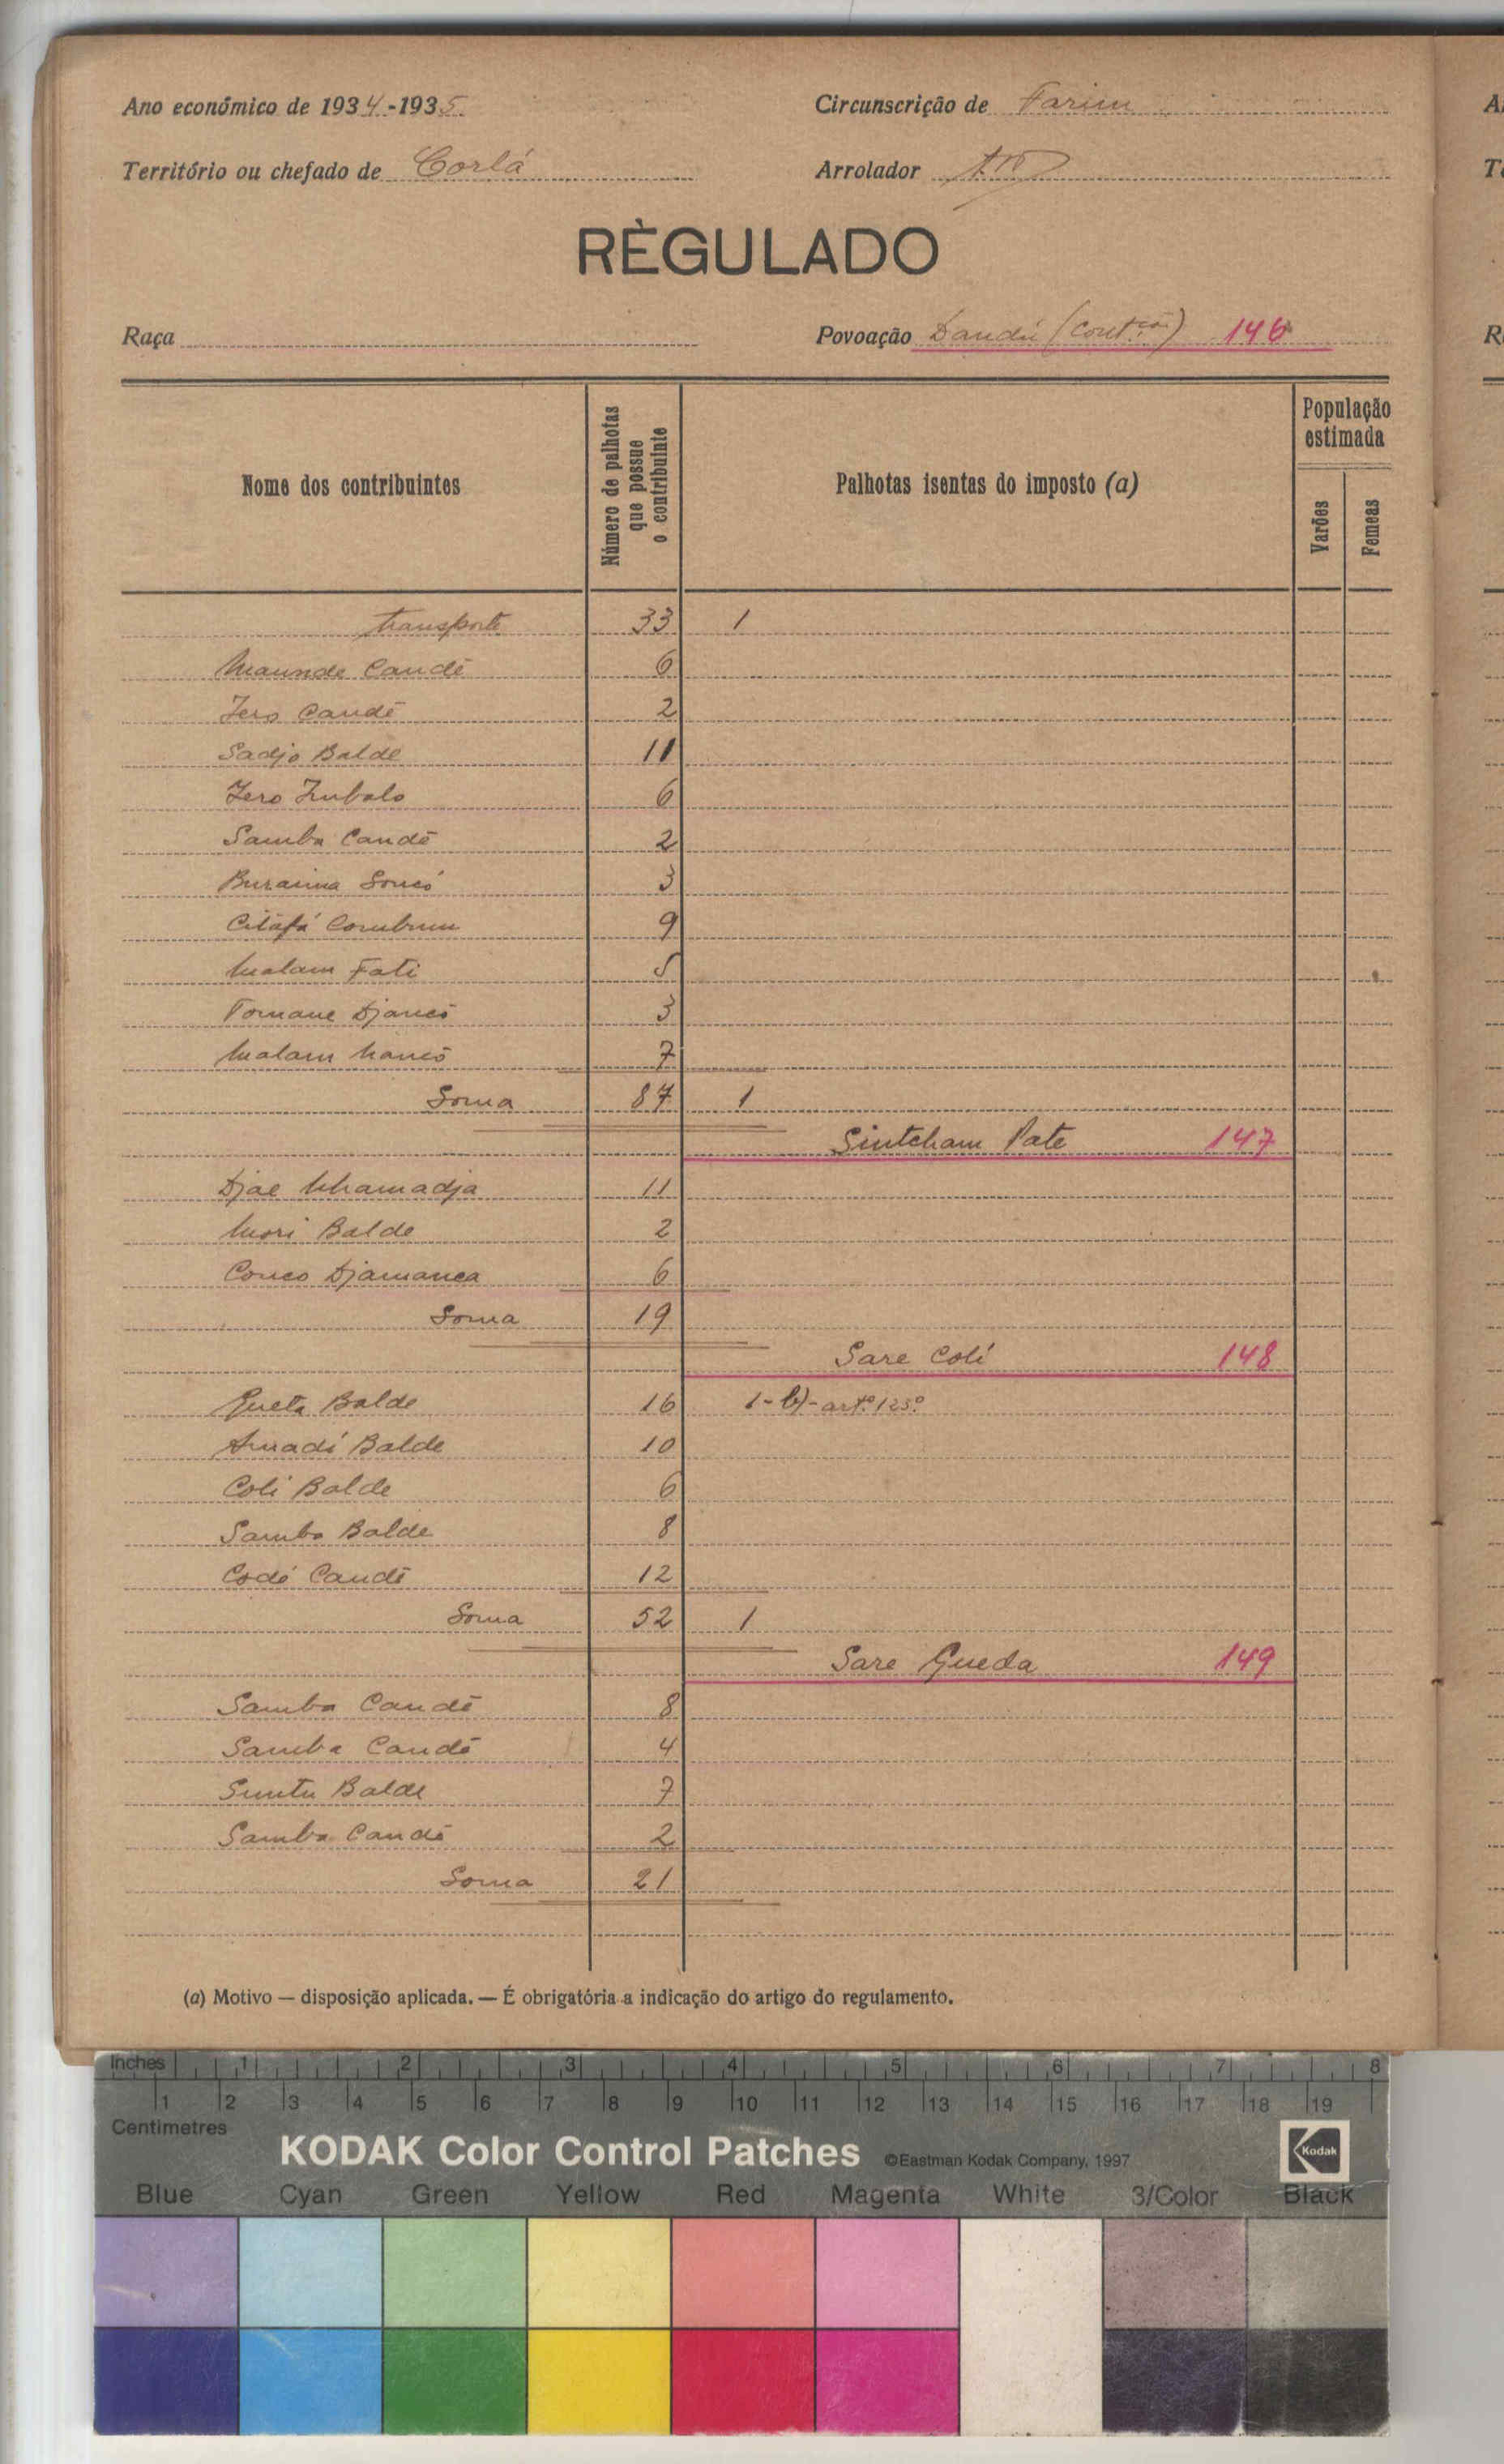 Ano económico de 1934-1935 Circunscrição de Farim
Território ou chefado de Corlá Arrolador
RÈGULADO
Raça Povoação Dandú (contção) 146
Nome dos contribuintes Número de palhotas que possue o contribuinte Palhotas isentas do imposto (a) População estimada Varões Femeas
transporte 33 1
Maunde Candé 6
Jero Candé 2
Sadjo Balde 11
Jero 6
Samba Candé 2
Buraima Soncó 3
9
Malam Fati 5
Tomane Djancó 3
Malam 7
Soma 87 1
Sintcham Pate 147
Djae 11
Mori Balde 2
Conco Djamanca 6
Soma 19
Sare Coli 148
Queta Balde 16 1-b)-artº.123º
Amadi Balde 10
Coli Balde 6
Samba Balde 8
Codé Candé 12
Soma 52 1
Sare Gueda 149
Samba Candé 8
Samba Candé 4
Suntu Balde 7
Samba Candé 2
Soma 21
(a) Motivo — disposição aplicada. — É obrigatória a indicação do artigo do regulamento.
Inches 1 2 3 4 5 6 7 8
1 2 3 4 5 6 7 8 9 10 11 12 13 14 15 16 17 18 19
Centimetres
KODAK Color Control Patches ©Eastman Kodak Company, 1997 Kodak
Blue Cyan Green Yellow Red Magenta White 3/Color Black